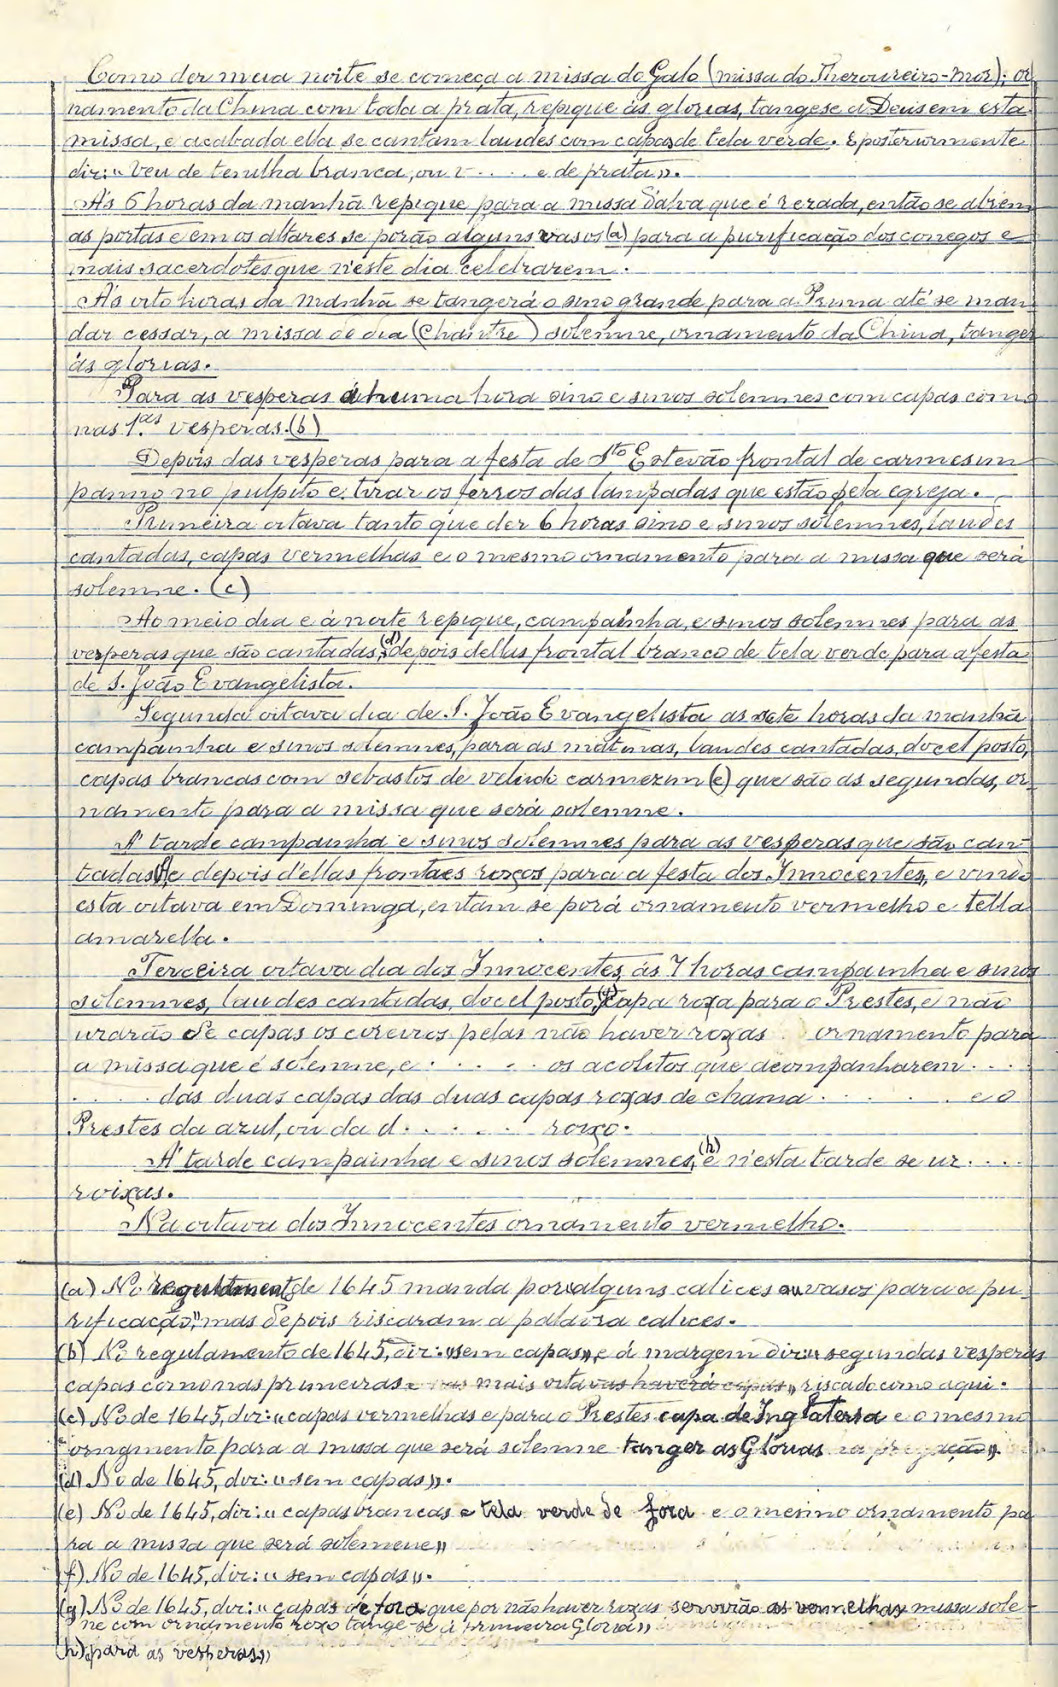 Como der meia noite se começa a missa do Galo (missa do Thezoureiro-Mor); or
namento da China com toda a prata, repique ás glorias, tangese a Deus em esta
missa, e acabada ella se cantam laudes com capas de tela verde. E posteriormente
diz: "Veu de tenilha branca, ou v.... e de prata".
Ás 6 horas da manhã repique para a missa d'alva que é rezada, então se abrem
as portas e em os altares se porão alguns vasos (a) para a purificação dos conegos e
mais sacerdotes que n'este dia celebrarem.
Ás oito horas da manhã se tangerá o sino grande para a Prima até se man
dar cessar, a missa do dia (Chantre) solemne, ornamento da China, tanger
ás glorias.
Para as vesperas á huma hora sino e sinos solemnes com capas como
nas 1.as vesperas. (b)
Depois das vesperas para a festa de Sto Estevão frontal de carmesim
panno no pulpito e tirar os ferros das lampadas que estão pela egreja.
Primeira oitava tanto que der 6 horas sino e sinos solemnes, laudes
cantadas, capas vermelhas e o mesmo ornamento para a missa que será
solemne. (c)
Ao meio dia e á noite repique, campaínha, e sinos solemnes para as
vesperas que são cantadas, (d) depois dellas frontal branco de tela verde para a festa
de S. João Evangelista.
Segunda oitava dia de S. João Evangelista as sete horas da manhã
campainha e sinos solemnes, para as matinas, laudes cantadas, docel posto,
capas brancas com sebastos de veludo carmezim (e) que são as segundas, or-
namento para a missa que será solemne.
Á tarde campainha e sinos solemnes para as vesperas que são can-
tadas (f) e depois d'ellas frontaes roxos para a festa dos Innocentes, e vindo
esta oitava em Dominga, entam se porá ornamento vermelho e tella
amarella.
Terceira oitava dia dos Innocentes, ás 7 horas campainha e sinos
solemnes, laudes cantadas, docel posto, (g) capa roxa para o Prestes, e não
uzarão de capas os coreiros pelas não haver roxas ornamento para
a missa que é solemne, e . . . . . os acolitos que acompanharem . . . .
. . . . . das duas capas das duas capas roxas de chama . . . . . e o
Prestes da azul, ou da d. . . . . . roixo.
Á tarde campainha e sinos solemnes, (h) e n'esta tarde se uz....
roixas.
Na oitava dos Innocentes ornamento vermelho.
(a) No regulamento de 1645 manda por "alguns calices ou vasos para a pu-
rificação", mas depois riscaram a palavra calices.
(b) No regulamento de 1645, diz: "sem capas", e á margem diz: "segundas vesperas
capas como nas primeiras e nas mais oitavas haverá capas" riscado como aqui.
(c) No de 1645, diz: "capas vermelhas e para o Prestes capa de Inglaterra e o mesmo
ornamento para a missa que será solemne tanger as Glorias
(d) No de 1645, diz: "sem capas".
(e) No de 1645, diz: "capas brancas e tela verde de fora e o mesmo ornamento pa
ra a missa que será solemene"
(f) No de 1645, diz: "sem capas".
(g) No de 1645, diz: "capas de fora que por não haver roxas servirão as vermelhas missa sole
ne com ornamento roxo tange-se á primeira Gloria"
(h) para as vesperas"